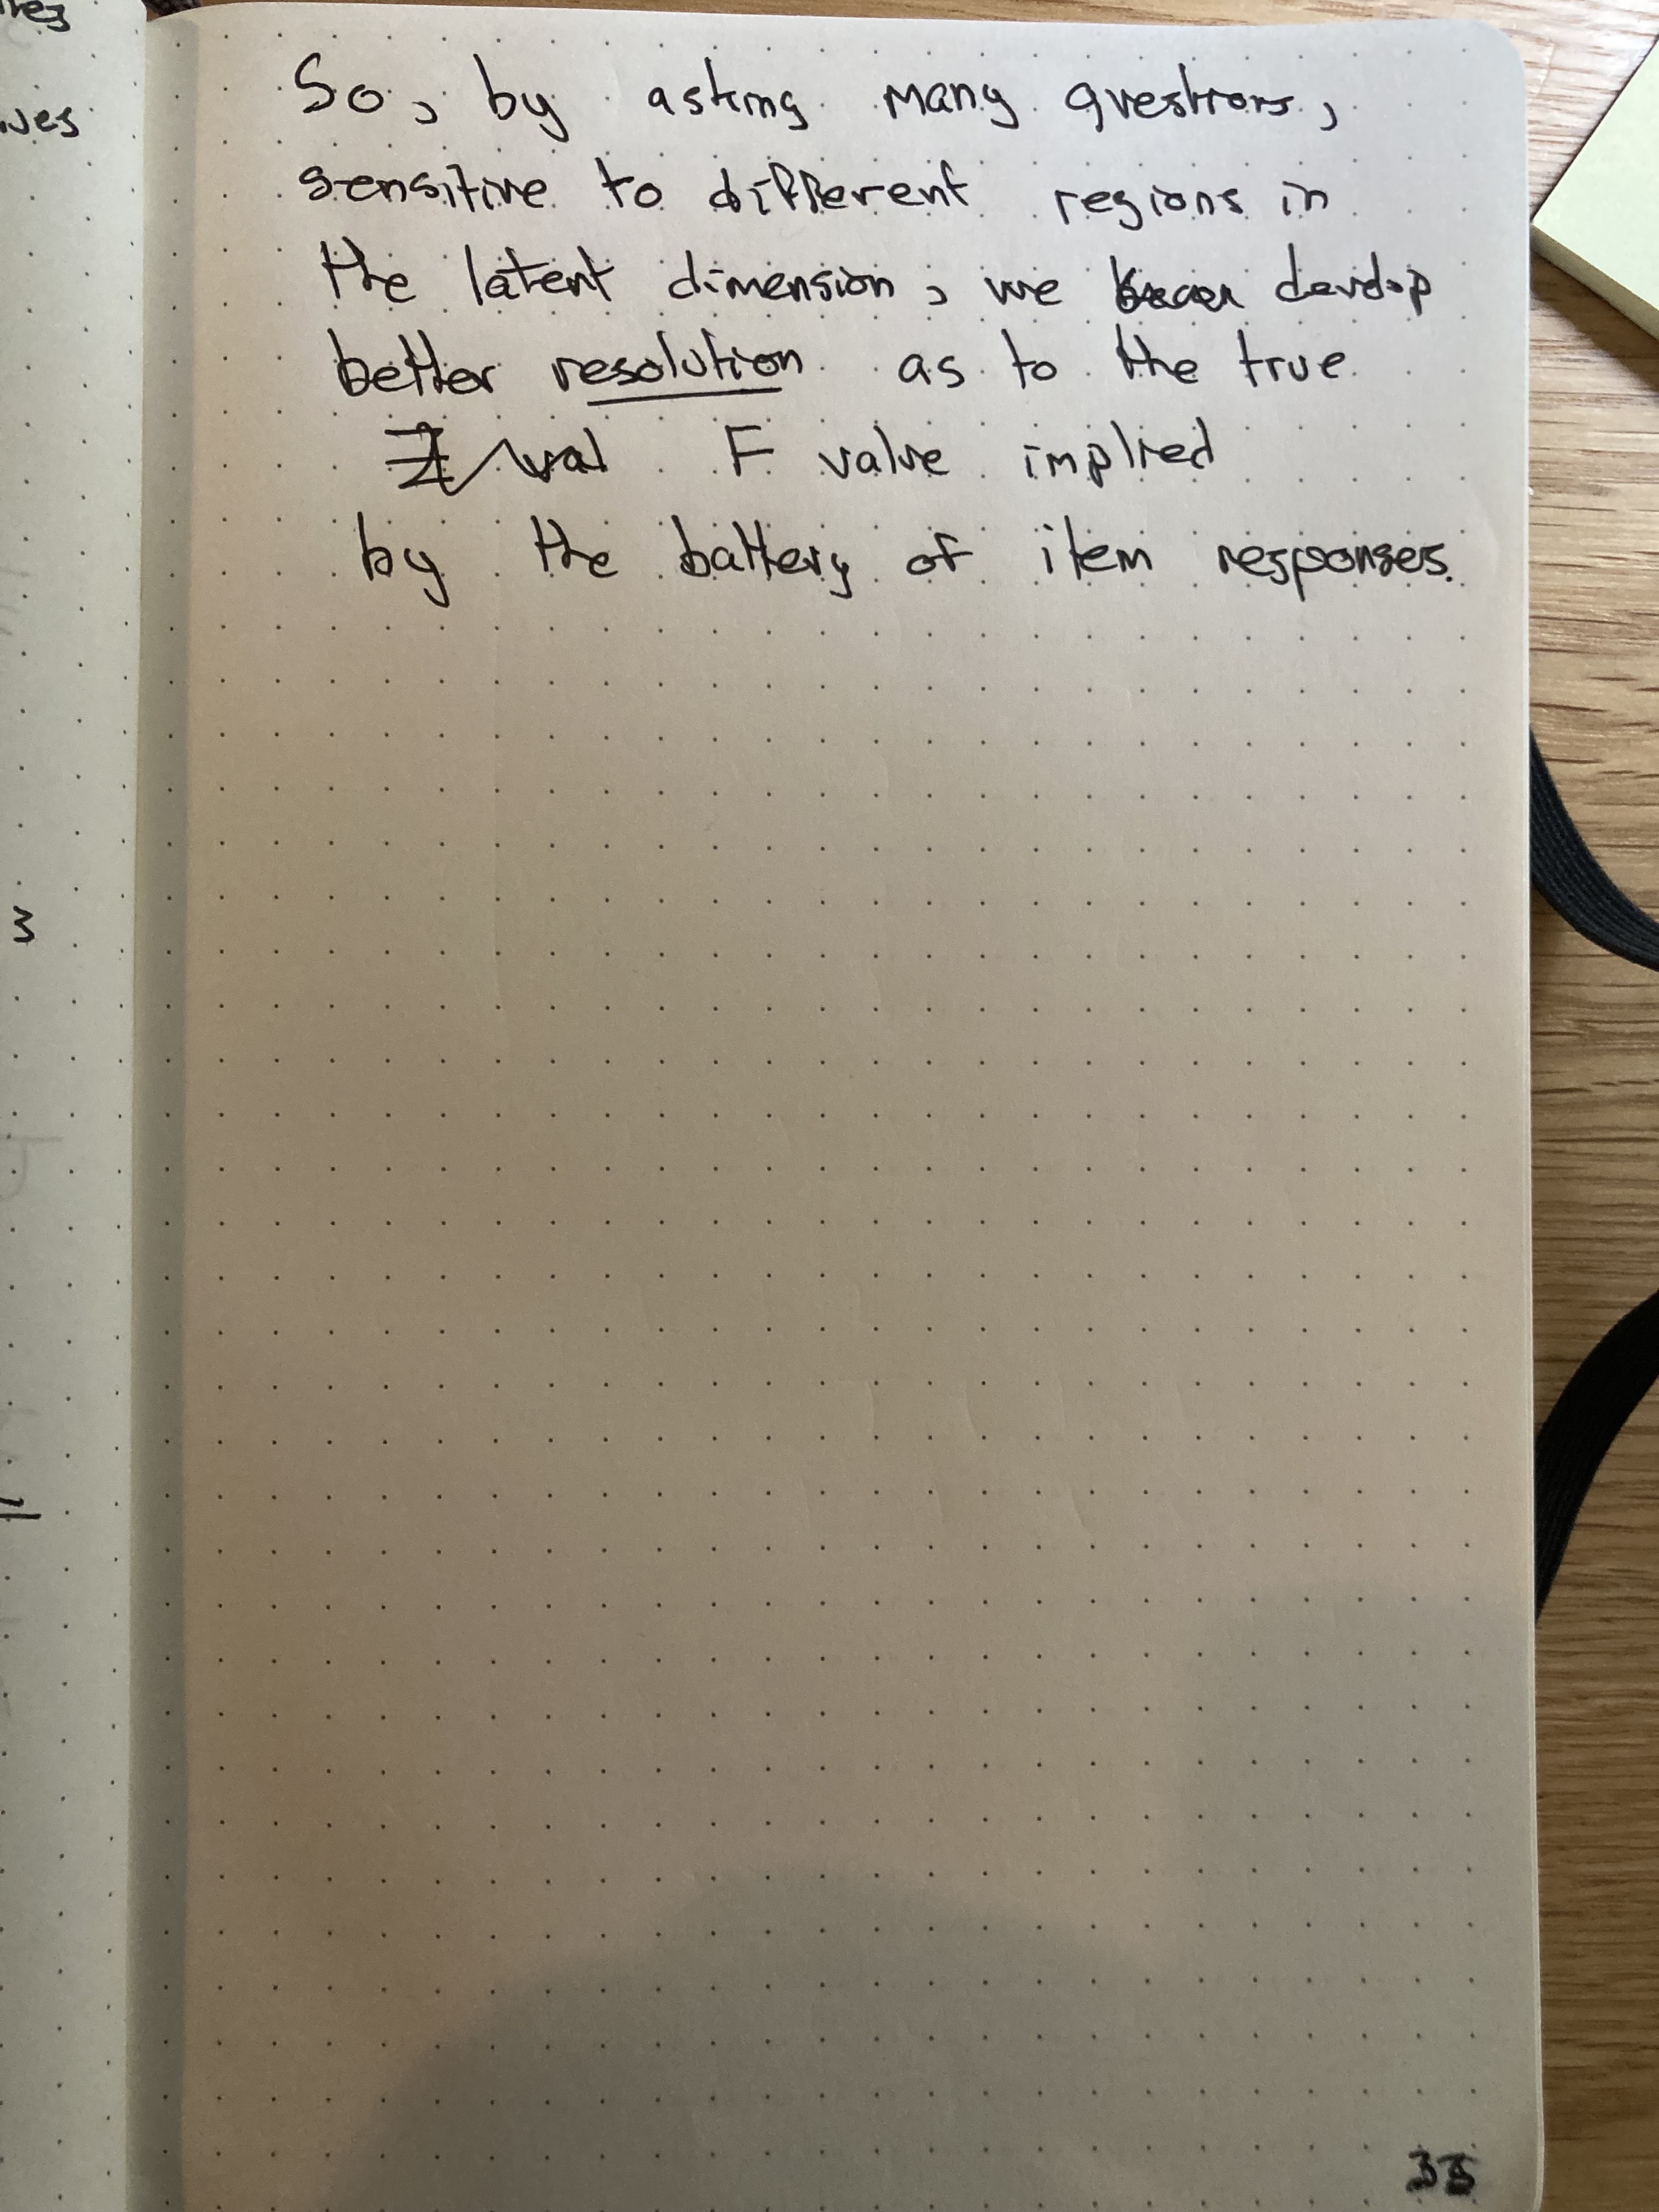 So, by asking many questions,
sensitive to different regions in
the latent dimension, we develop
better resolution as to the true
val F value implied
by the battery of item responses.
3